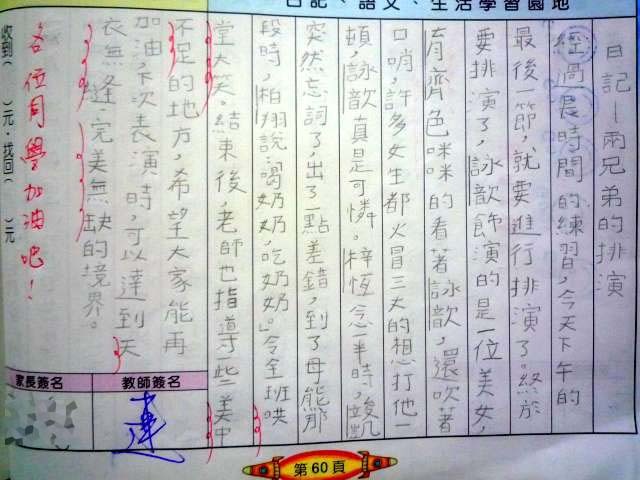 日記、語文、生活學習園地
日記—兩兄弟的排演
經過長時間的練習,今天下午的
最後一節,就要進行排演了。終於
要排演了,詠歆飾演的是一位美女,
有齊色咪咪的看著詠歆,還吹著
口哨,許多女生都火冒三丈的想打他一
頓,詠歆真是可憐。梓恆念一半時,
突然忘詞了,出了一點差錯,到了母熊那
段時,柏翔說:「喝奶奶,吃奶奶。」令全班哄
堂大笑。結束後,老師也指導了一些美中
不足的地方,希望大家能再
加油,下次表演時,可以達到天
衣無縫、完美無缺的境界。
各位同學加油吧!
收到( )元.找回( )元
教師簽名
家長簽名
第60頁